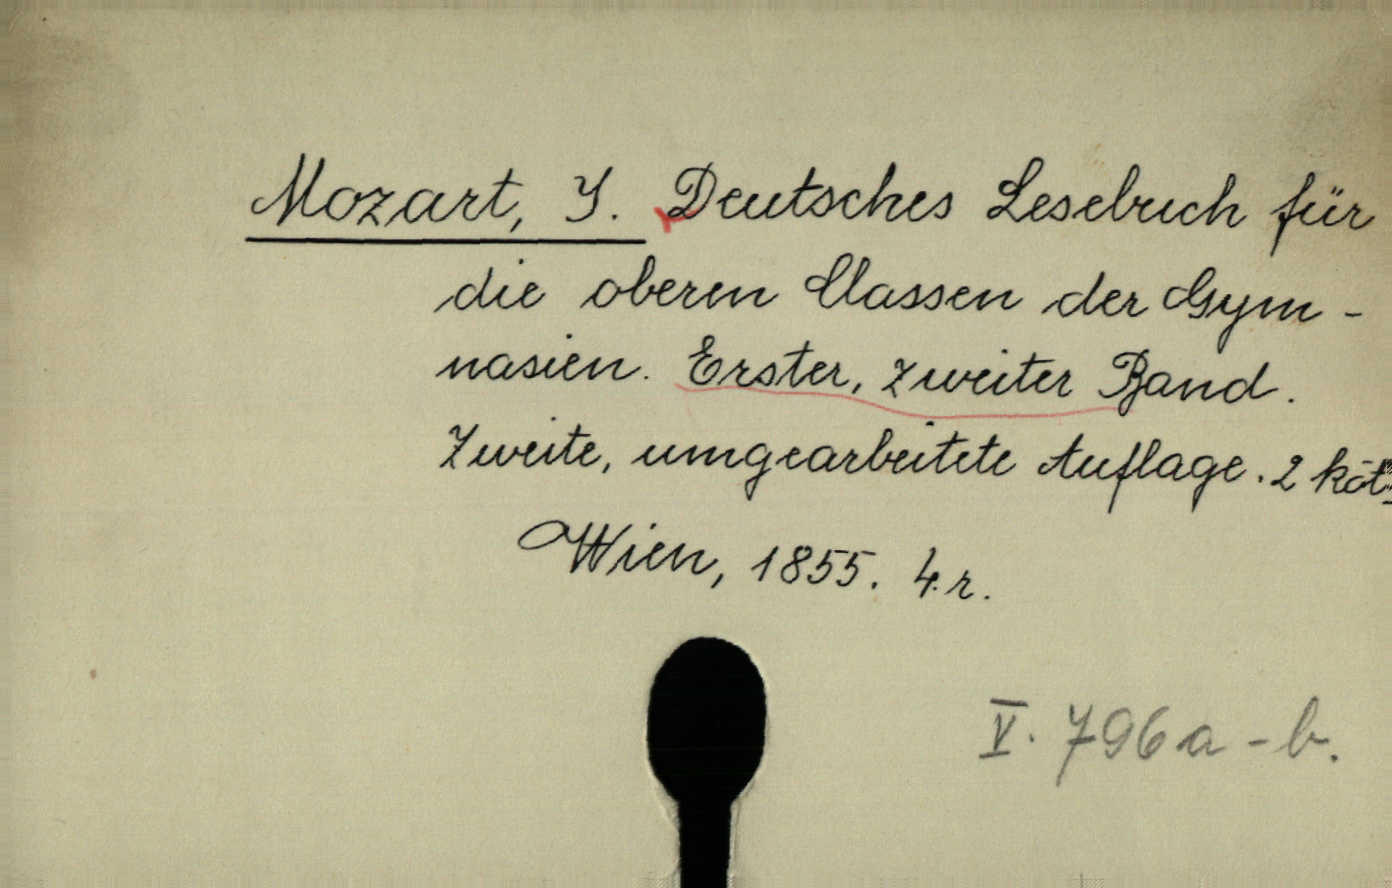 Mozart, J. Deutsches Lesebuch für
die oberen Classen der Gym-
nasien. Erster, zweiter Band.
Zweite, umgearbeitete Auflage. 2 köt.
Wien, 1855. 4.r.
V. 796a-b.